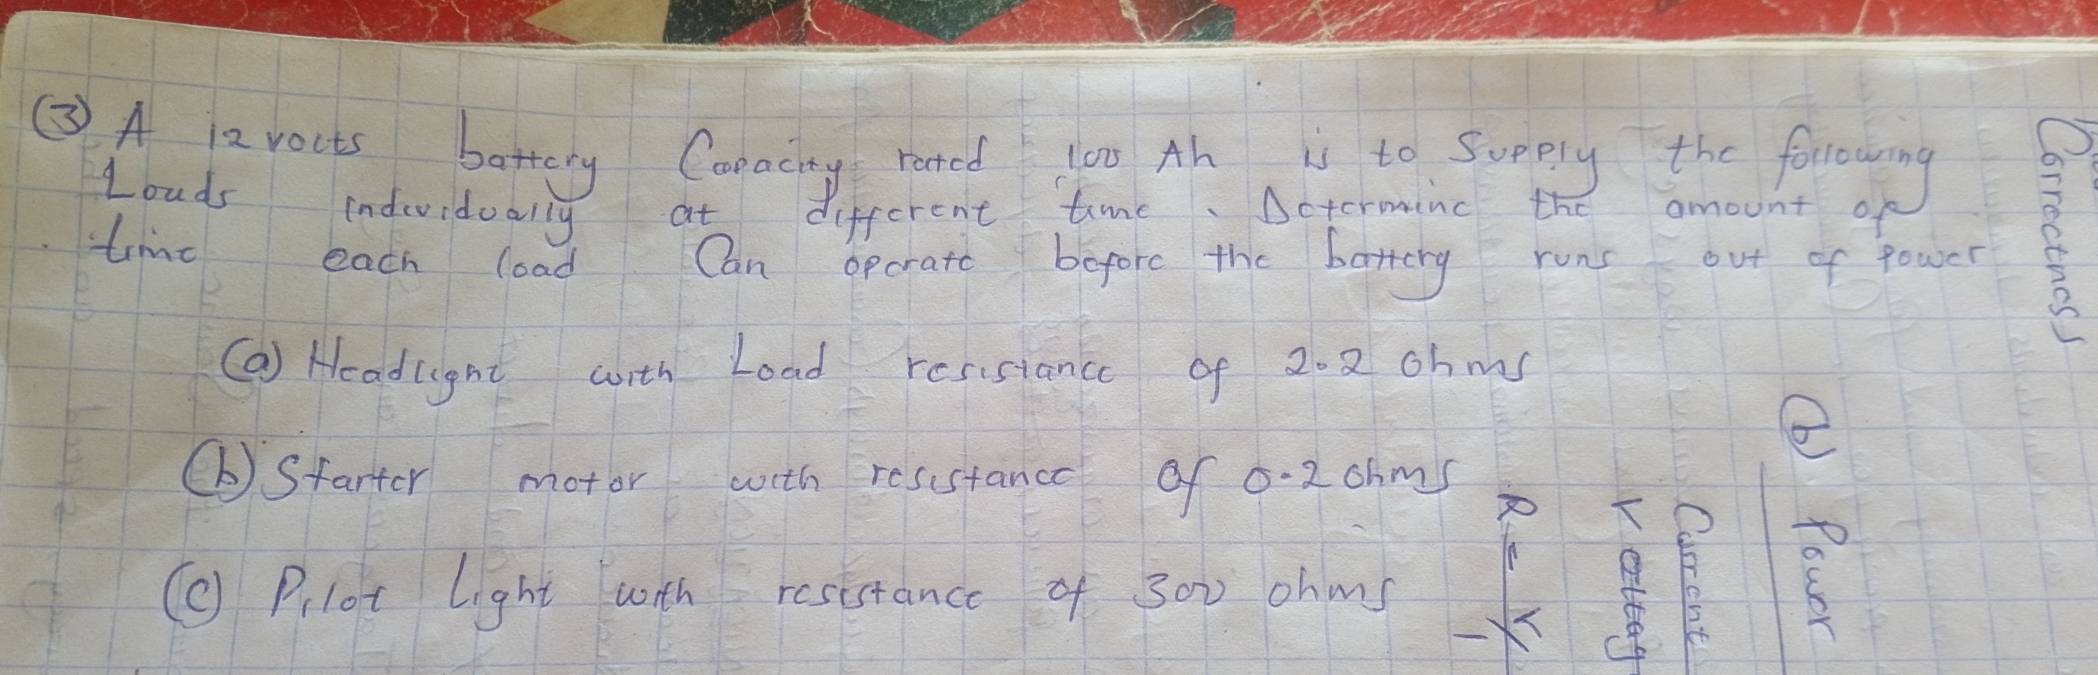 (3) A 12 volts battery Capacity rated 100 Ah is to Supply the following
Loads individually at different time. Determine the amount of
time each load Can operate before the battery runs out of power
(a) Headlight with Load resistance of 2.2 ohms
(b) Starter motor with resistance of 0.2 ohms
(c) Pilot light with resistance of 300 ohms
Correctness
(b) Power
Current
R = V